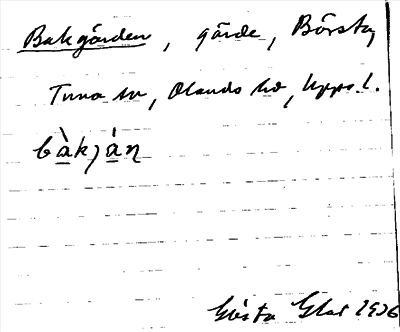 Bakgården, gärde, Börsta,
Tuna sn, Olands hd, Upps. l.
bàkján
Gösta Glas 1936